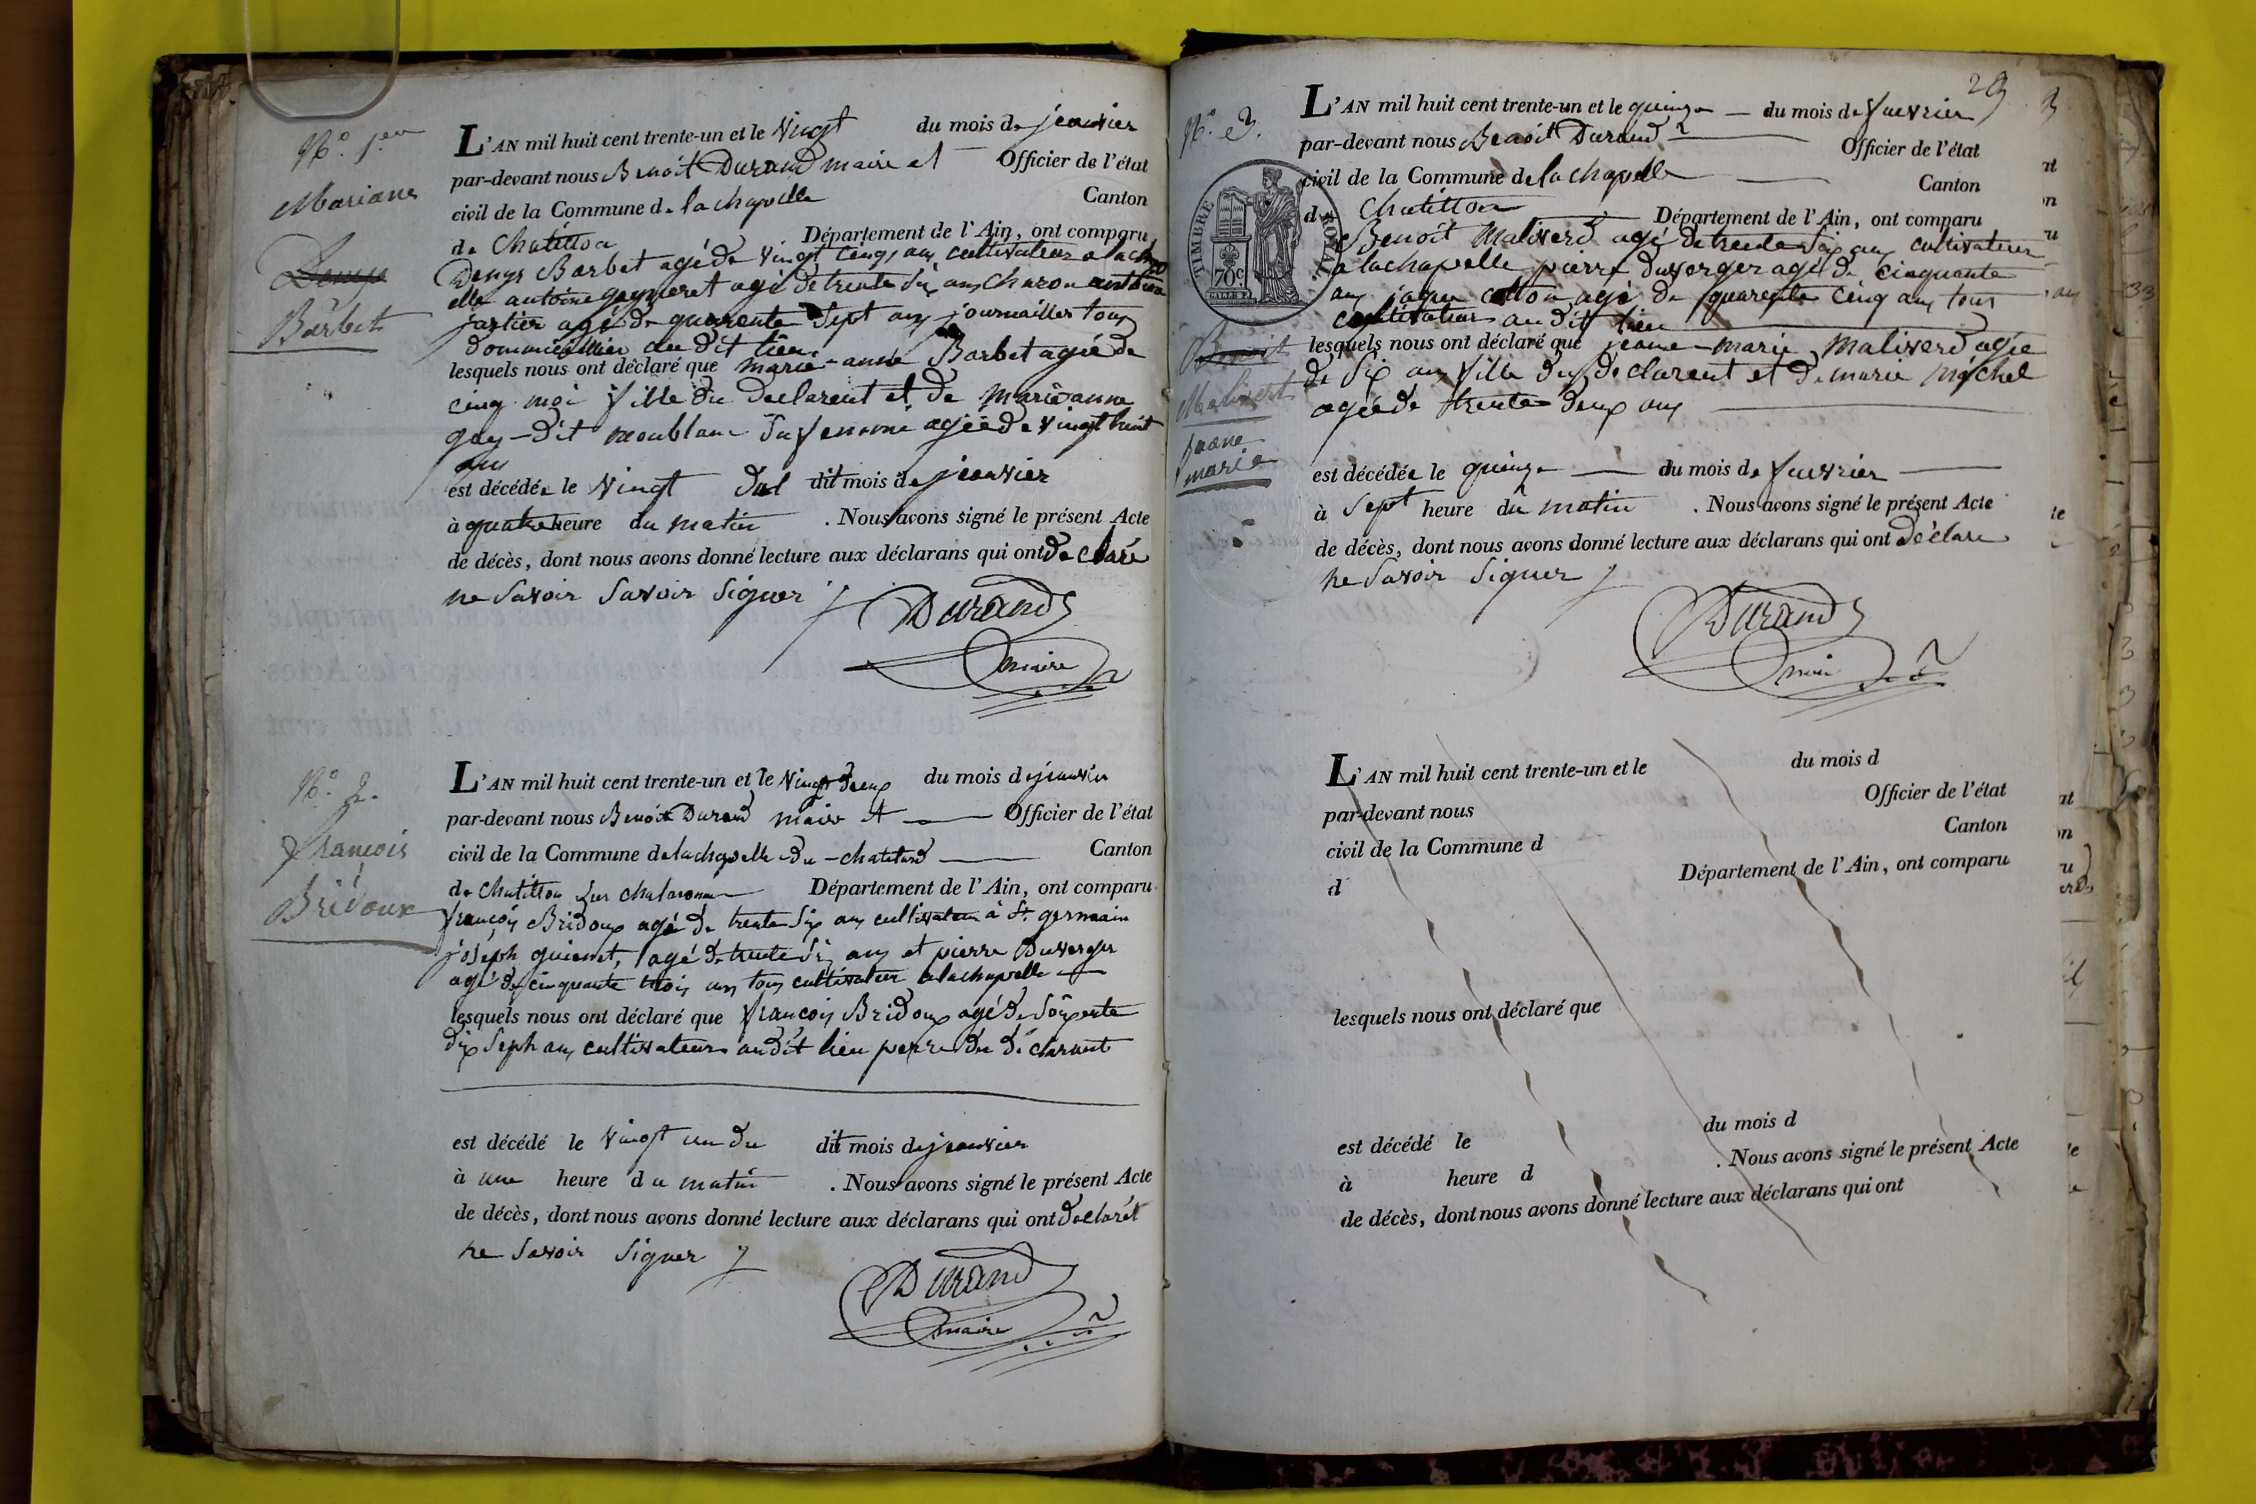 N.º 1.er
Mariane
Denys
Barbet
L'AN mil huit cent trente-un et le vingt du mois de jeanvier
par-devant nous Benoit Durand maire et Officier de l'état
civil de la Commune de lachapelle Canton
de Chatillon Département de l'Ain, ont comparu
Denys Barbet agé de vingt cinq ans cultivateur a lachap
elle antoine agé de trente six ans charon
agé de quarente sept ans journaillier tous
au dit lieu
lesquels nous ont déclaré que marie-anne Barbet agée de
cinq moi fille du declarent et de marie anne
guy-dit moublanc sa femme agée de vingt huit
ans
est décédée le vingt dud dit mois de jeanvier
à quatre heure du matin . Nous avons signé le présent Acte
de décès, dont nous avons donné lecture aux déclarans qui ont declaré
ne savoir savoir signer
Durand
maire
N.º 2.
François
Bridoux
L'AN mil huit cent trente-un et le vingt deux du mois de jeanvier
par-devant nous Benoit Durand maire et Officier de l'état
civil de la Commune de lachapelle-du-chatelard Canton
de Chatillon sur chalaronne Département de l'Ain, ont comparu
françois Bridoux agé de trente six ans cultivateur à St. germain
joseph agé de trente six ans et pierre Duverger
agé de cinquante trois ans tous cultivateur a lachapelle
lesquels nous ont déclaré que françois Bridoux agé de soixente
dix seph ans cultivateur au dit lieu perre du déclarant
est décédé le vingt un du dit mois de jeanvier
à une heure du matin . Nous avons signé le présent Acte
de décès, dont nous avons donné lecture aux déclarans qui ont declaré
ne savoir signer
Durand
maire
29
N.º 3.
TIMBRE ROYAL
70 c.
Benoit
Malivert
jeane
marie
L'AN mil huit cent trente-un et le quinze du mois de fuevrier
par-devant nous Benoit Durand Officier de l'état
civil de la Commune de lachapelle Canton
de Chatillon Département de l'Ain, ont comparu
Benoit Maliverd agé de trente six ans cultivateur
a lachapelle pierre duverger agé de cinquante
ans jaque cotton agé de quarente cinq ans tous
cultivateur au dit lieu
lesquels nous ont déclaré que jeane-marie Maliverd agée
de six ans fille du declarent et de marie michel
agée de trente deux ans
est décédée le quinze du mois de fuevrier
à sept heure du matin . Nous avons signé le présent Acte
de décès, dont nous avons donné lecture aux déclarans qui ont déclare
ne savoir signer
Durand
L'AN mil huit cent trente-un et le du mois d
par-devant nous Officier de l'état
civil de la Commune d Canton
d Département de l'Ain, ont comparu
lesquels nous ont déclaré que
est décédé le du mois d
à heure d . Nous avons signé le présent Acte
de décès, dont nous avons donné lecture aux déclarans qui ont